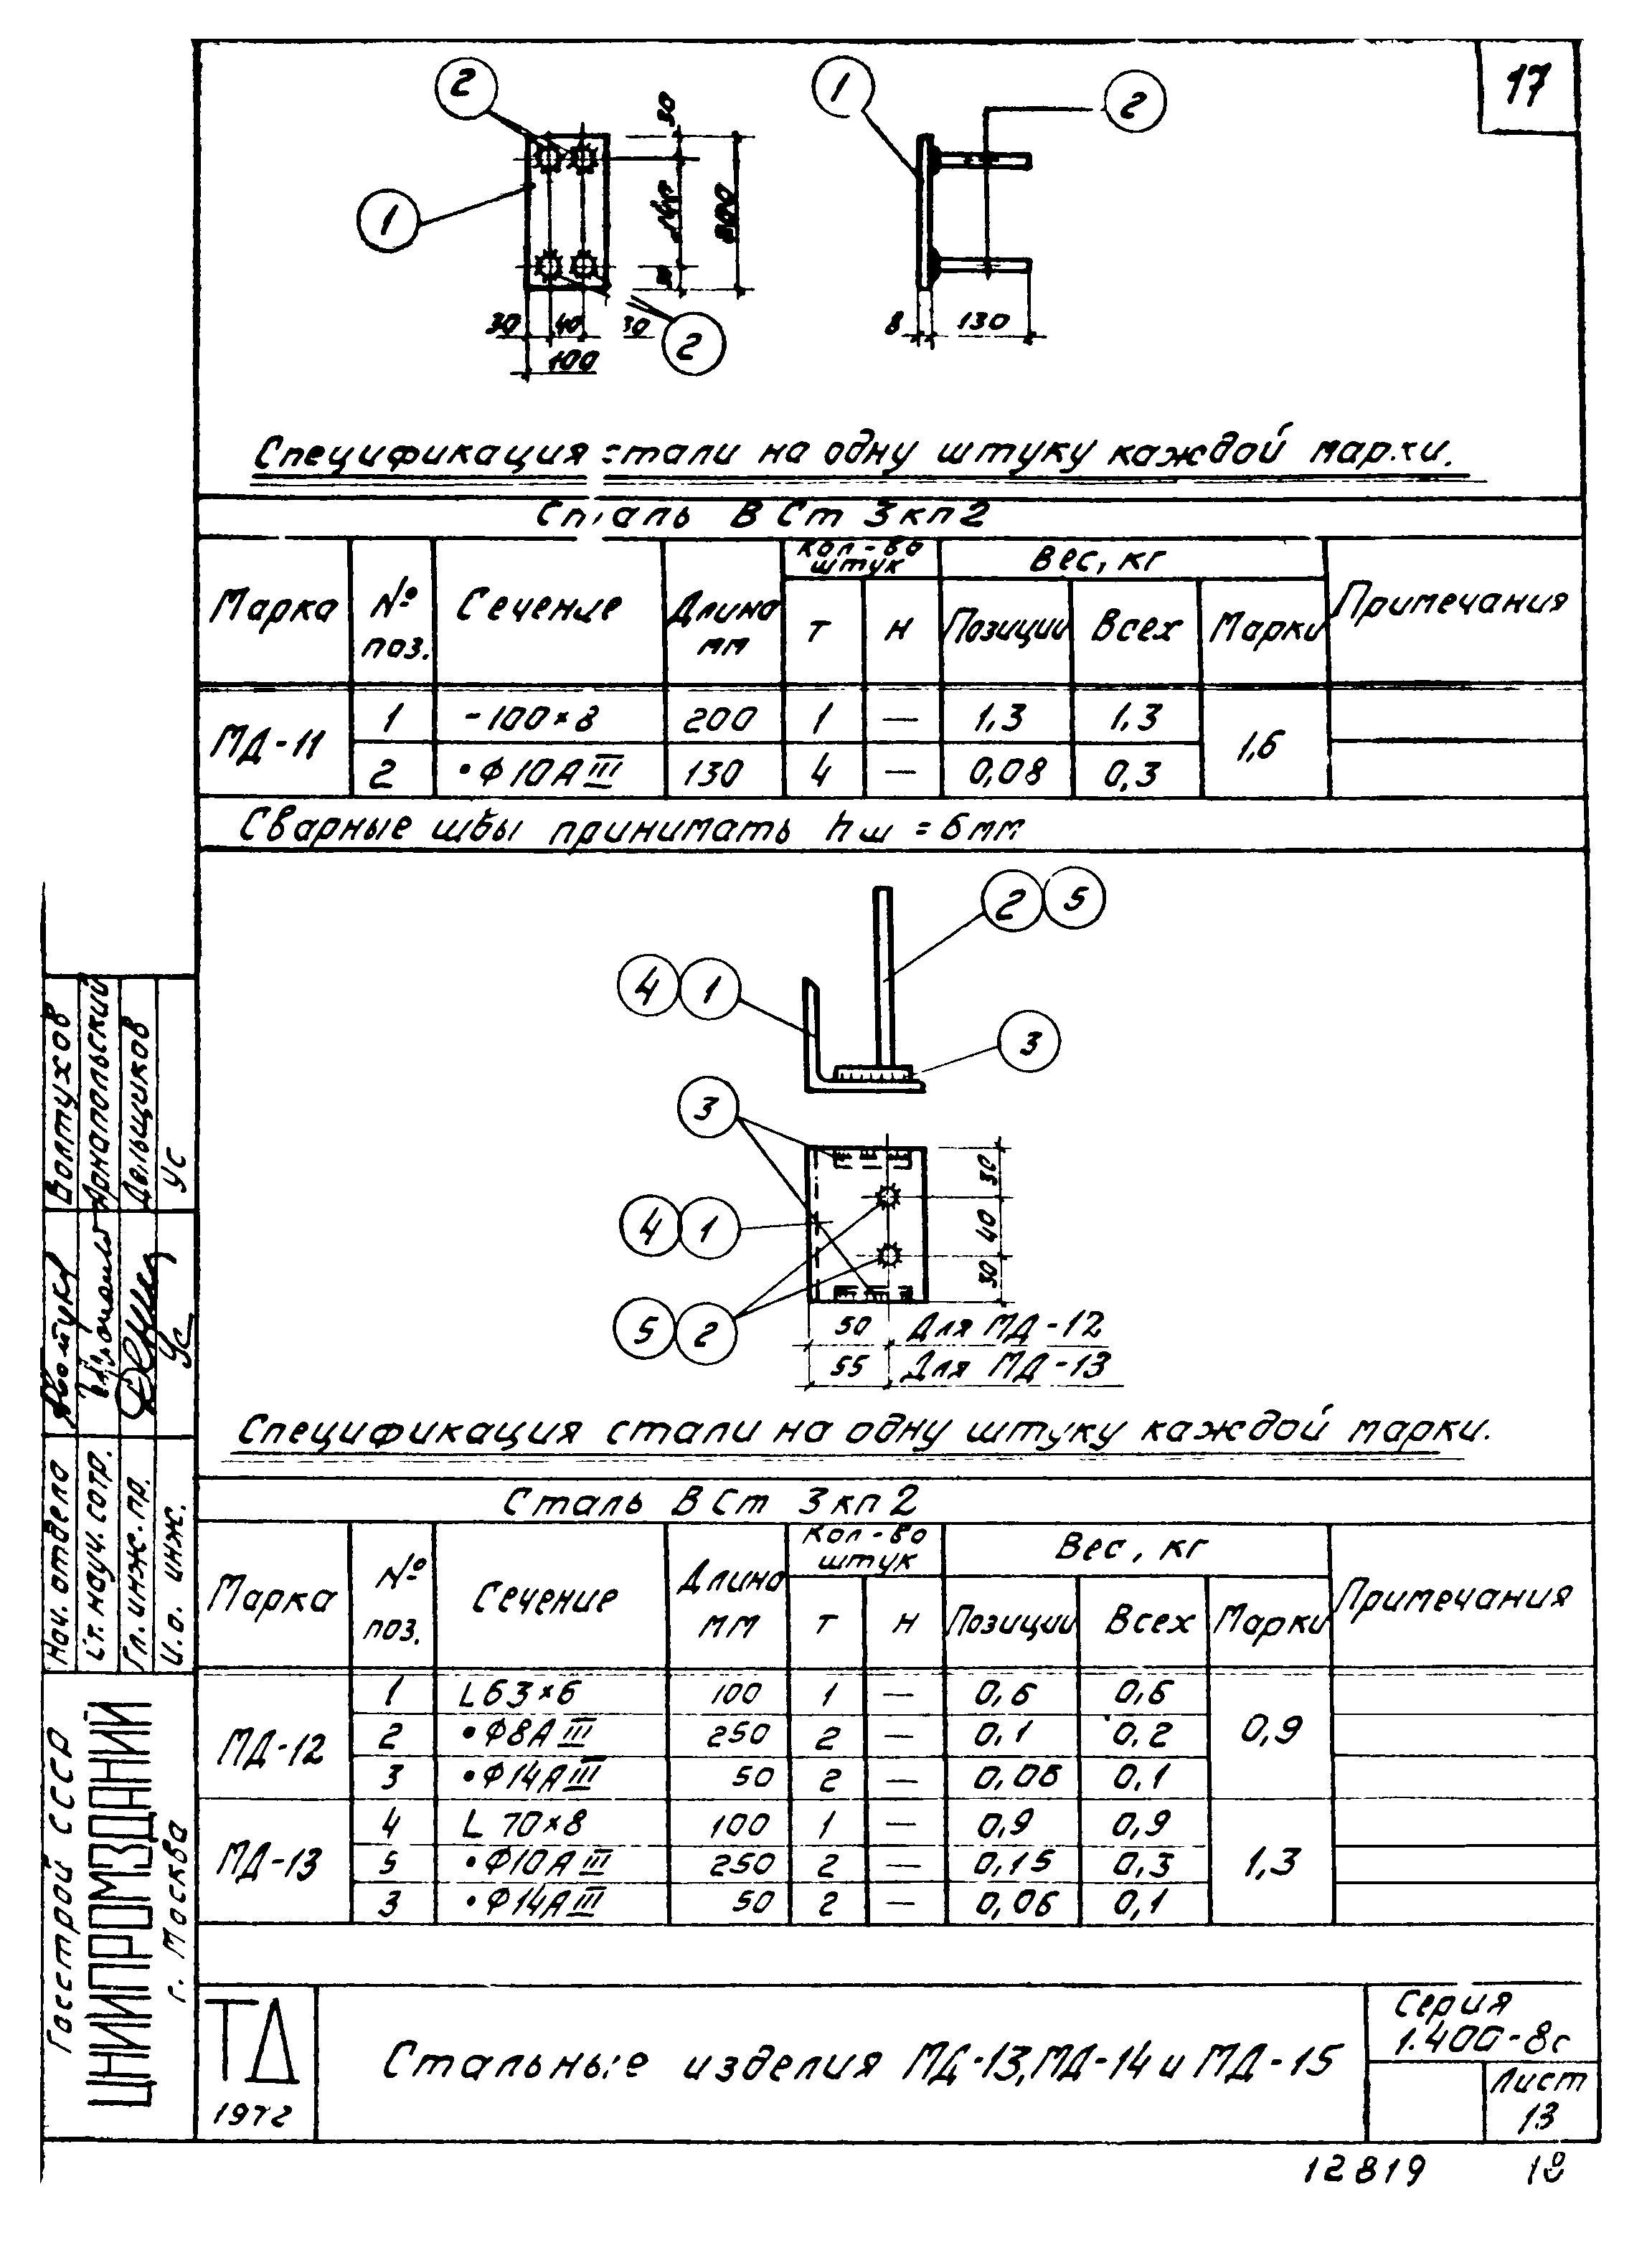 17
2
1
2
1
30
140
200
30
30
40
30
2
100
8
130
Спецификация стали на одну штуку каждой марки.
Сталь В Ст 3кп2
Марка № поз. Сечение Длина мм Кол-во штук Вес, кг Примечания
т н Позиции Всех Марки
МД-11 1 -100×8 200 1 — 1,3 1,3 1,6
2 •Ф10АIII 130 4 — 0,08 0,3
Сварные швы принимать hш = 6мм
2 5
4 1
3
3
4 1
5 2
30
40
30
50 Для МД-12
55 Для МД-13
Спецификация стали на одну штуку каждой марки.
Сталь В Ст 3кп2
Марка № поз. Сечение Длина мм Кол-во штук Вес, кг Примечания
т н Позиции Всех Марки
МД-12 1 L63×6 100 1 — 0,6 0,6 0,9
2 •Ф8АIII 250 2 — 0,1 0,2
3 •Ф14АIII 50 2 — 0,06 0,1
МД-13 4 L 70×8 100 1 — 0,9 0,9 1,3
5 •Ф10АIII 250 2 — 0,15 0,3
3 •Ф14АIII 50 2 — 0,06 0,1
ТД
1972
Стальные изделия МД-13, МД-14 и МД-15
Серия
1.400-8с
Лист
13
12819 18
Госстрой СССР
ЦНИИПРОМЗДАНИЙ
г. Москва
Нач. отдела Волтухов
Ст. науч. сотр.
Гл. инж. пр. Дельщиков
И.о. инж. Ус Ус